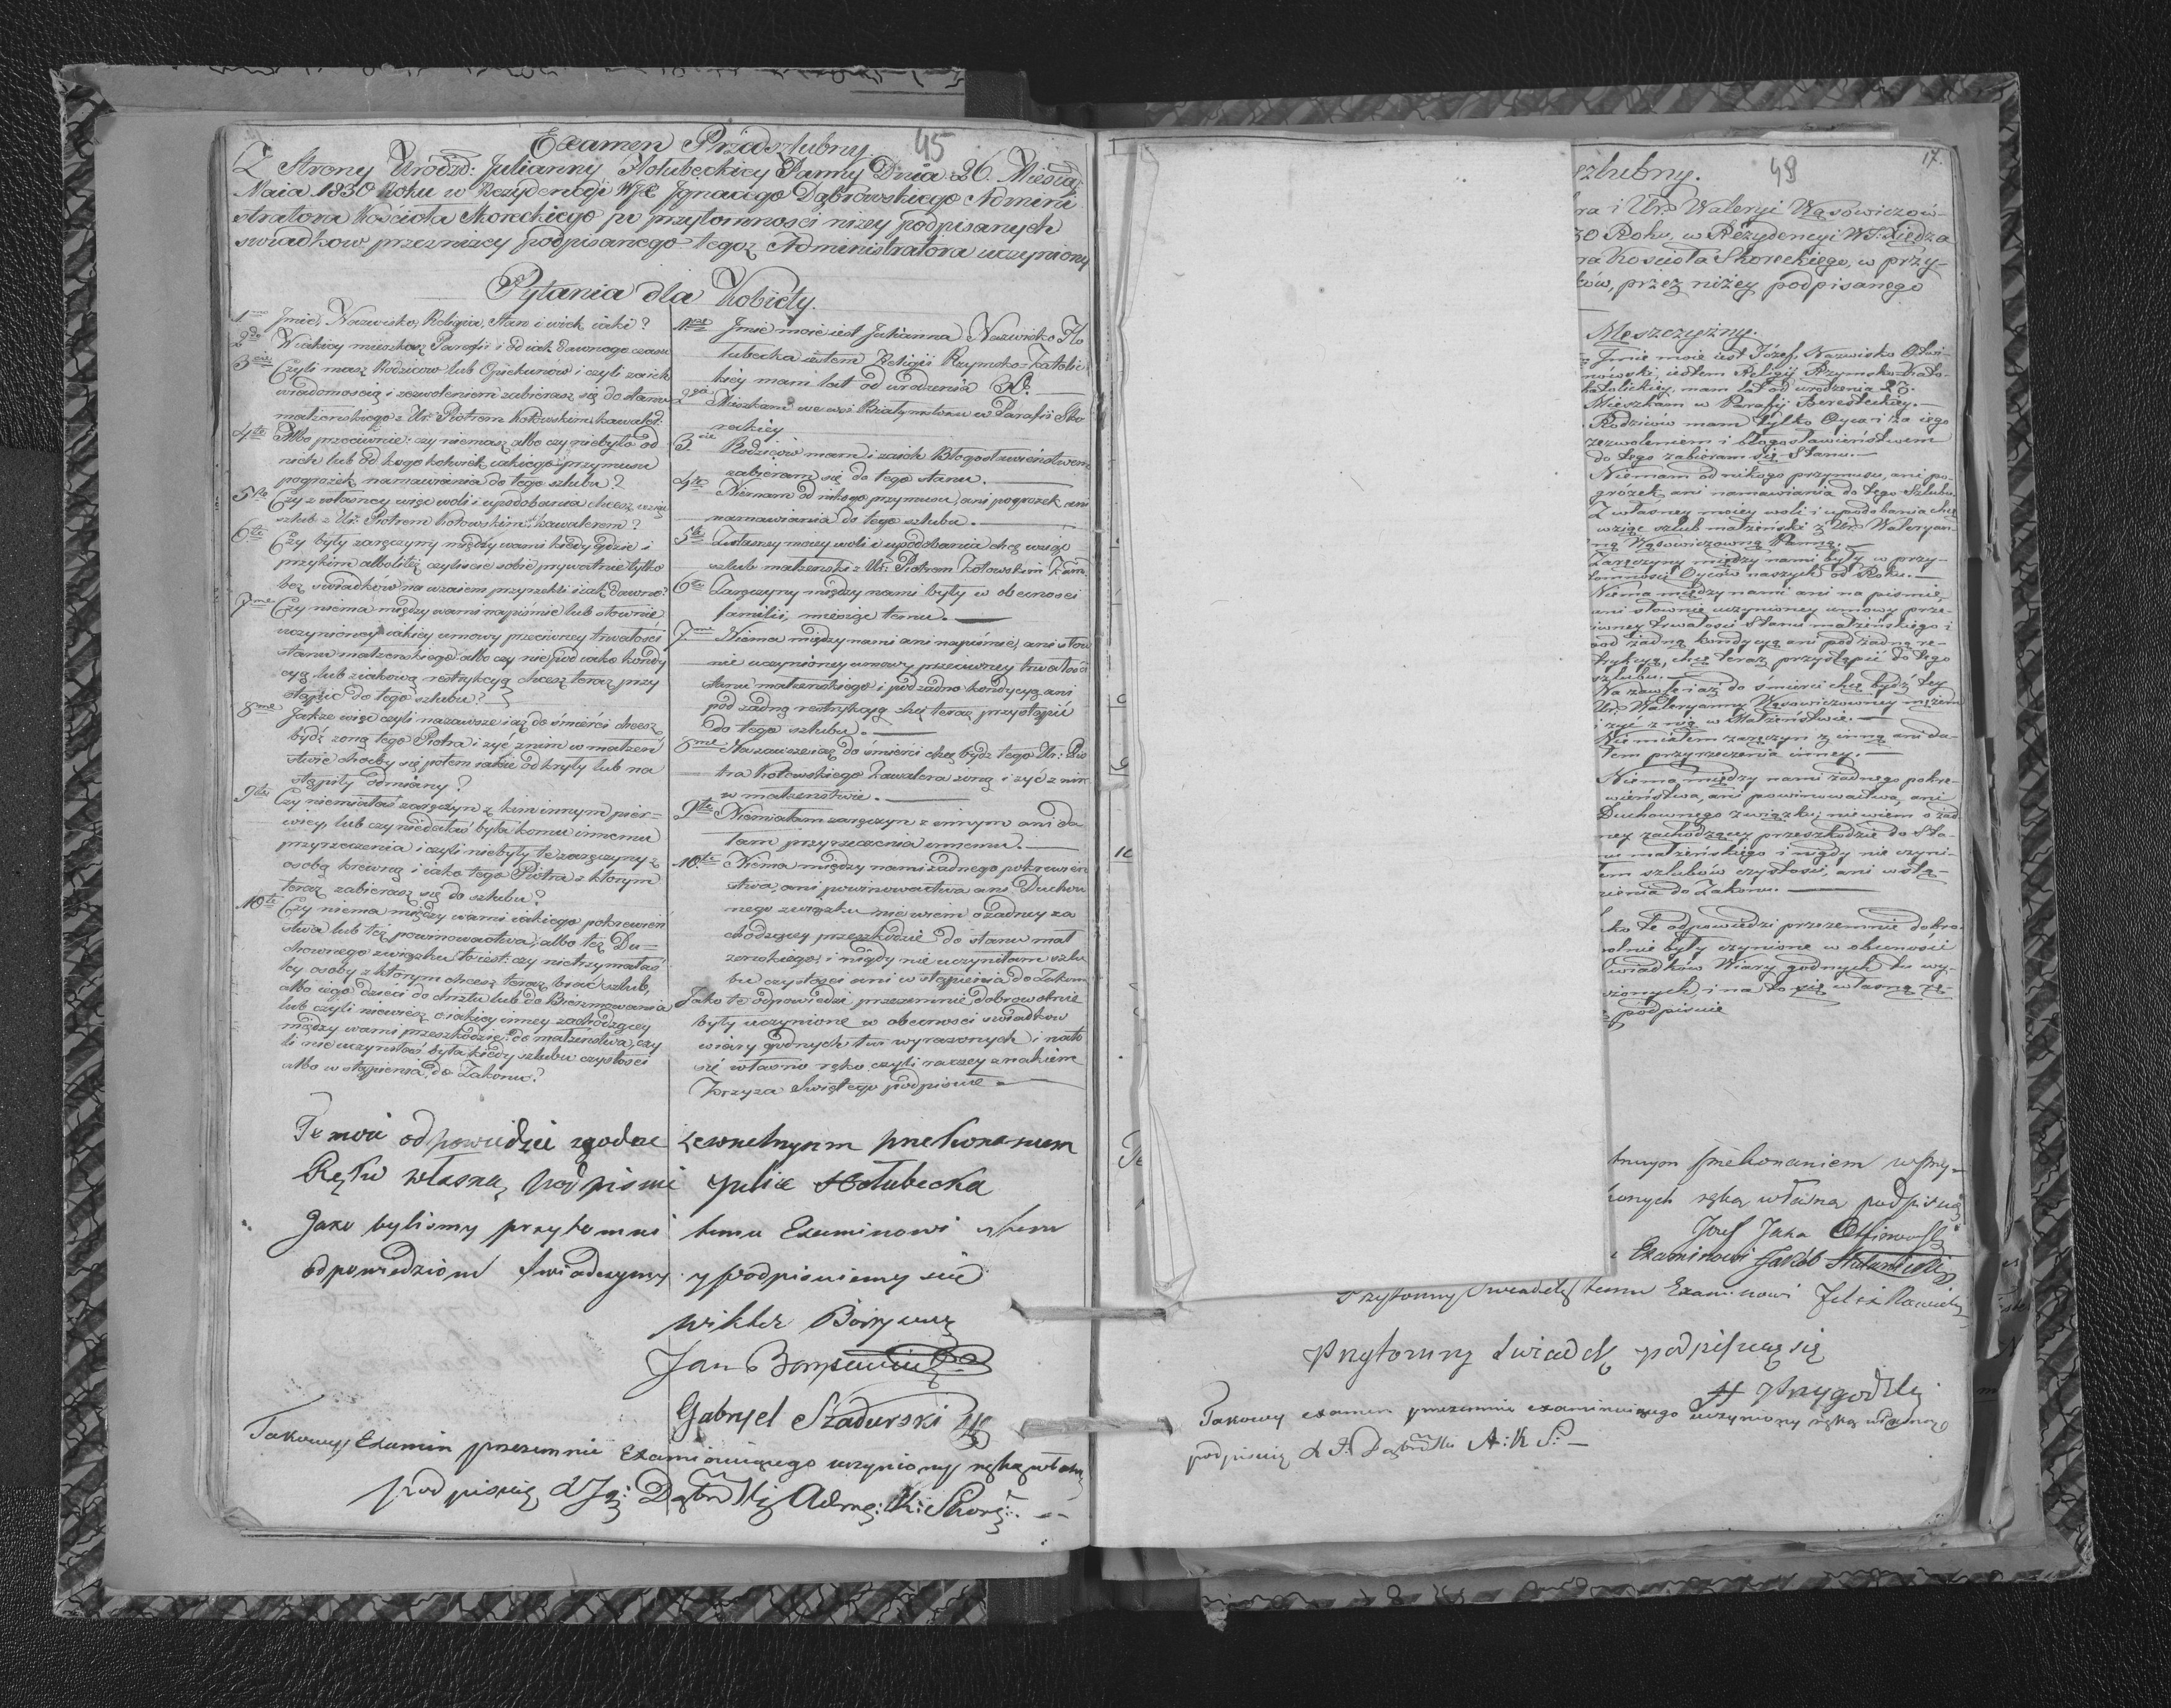 Examen Przedszlubny.
45
Z Strony Urodzo: Julianny Hołubeckiey Panny Dnia 26. Miesiąc
Maia 1830 Roku w Rezydencyi WJX Ignacego Dąbrowskiego Admini
stratora Kościoła Skoreckiego po przytomnosci niżey podpisanych
swiadkow przez niżey podpisanego tegoż Administratora uczyniony
Pytania dla Kobiéty.
1mo Jmie, Nazwisko, Religia, Stan i wiek iaki?
2do W iakiey mieszkasz Parafii i od iak dawnego czasu
3cio Czyli masz Rodzicow lub Opiekunow i czyli za ich
wiadomoscią i zezwoleniem zabierasz się do stanu
małzenskiego z Ur: Piotrem Kołowskim kawaler:
4to Albo przeciwnie: czy niemasz albo czy niebyło od
nich lub od kogo kolwiek iakiego przymusu
pogrożek namawiania do tego szlubu?
5to Czy z własney więc woli i upodobania chcesz wziąć
szlub z Ur: Piotrem Kołowskim kawalerem?
6to Czy były zaręczyny między wami kiedy gdzie i
przykim albo też czyliscie sobie prywatnie tylko
bez swiadków na wzaiem przyrzekli i iak dawno?
7me Czy niema między wami napiśmie lub słownie
uczynioney iakiey umowy przeciwney trwałosci
stanu małzenskiego albo czy nie pod iako kondy
cyą lub ziakową restrykcyą chcesz teraz przy
stąpić do tego szlubu?
8me Jakże więc czyli nazawsze i aż do śmierci chcesz
bydź żoną tego Piotra i żyć z nim w małżeń
stwie choćby się potem iakie odkryły lub na
stąpiły odmiany?
9te Czy niemiałaś zaręczyn z kim innym pier=
wiey, lub czy niedałaś była komu innemu
przyrzeczenia i czyli niebyły te zaręczyny z
osobą krewną i iako tego Piotra z ktorym
teraz zabierasz się do szlubu?
10te Czy niema między wami iakiego pokrewień
stwa lub też powinowactwa, albo też Du=
chownego związku to iest: czy nietrzymałaś
tey osoby z ktorym chcesz teraz brać szlub,
albo iego dzieci do chrztu lub do Bierzmowania
lub czyli niewiesz o iakiey inney zachodzącey
między wami przeszkodzie do małzenstwa, czy
li nie uczyniłaś była kiedy szlubu czystosci
albo wstąpienia do Zakonu?
1mo Jmie moie iest Julianna Nazwisko Ho
łubecka iestem Religii Rzymsko-Katolic
kiey mam lat od urodzenia
2do Mieszkam we wsi Białymstawu w Parafii Sko
reckiey
3cie Rodziców mam i za ich Błogosławieństwem
zabieram się do tego stanu.
4te Niemam od nikogo przymusu, ani pogrozek ani
namawiania do tego szlubu.
5te Z własney moiey woli i upodobania chcę wziąć
szlub małzenski z Ur: Piotrem Kołowskim Kaw:
6te Zaręczyny między nami były w obecnosci
familii, miesiąc temu.
7me Niema między nami ani napiśmie, ani słow
nie uczynioney umowy przeciwney trwałosci
stanu małzenskiego i pod zadno kondycyą ani
pod zadną restrykcyą chcę teraz przystąpić
do tego szlubu.
8me Na zawsze i aż do śmierci chcę bydz tego Ur: Pio
tra Kołowskiego Kawalera żoną i żyć z nim
w małzenstwie.
9te Niemiałam zaręczyn z innym ani da
łam przyrzeczenia innemu.
10te Niema między nami żadnego pokrewień
stwa, ani powinowactwa ani Duchow
nego związku nie wiem o żadney za
chodzącey przeszkodzie do stanu mał
zenskiego, i nigdy nie uczyniłam szlu
bu czystosci ani wstąpienia do Zakonu
Jako te odpowiedzi przezemnie dobrowolnie
były uczynione w obecnosci swiadkow
wiary godnych tu wyrazonych i na to
się własno ręko czyli raczey znakiem
Krzyza Swiętego podpisuię
Te moie odpowiedzi zgodne zewnetrznym przekonaniem
Ręku własną podpisuie Julia Hołubecka
Jako bylismy przytomni temu Examinowi y temu
odpowiedziom swiadczymy y podpisuiemy się
Wiktor
Jan
Gabryel Szadurski
Takowy Examin przezemnie Examinuiącego uczyniony ręką własną
podpisuię X Ig: Dąbrowski Adm: K: Skore:
17.
48
szlubny.
ra i Ur: Waleryi Wąsowiczów-
30 Roku, w Rezydencyi WJ Xiędza
ra Koscioła Skoreckiego, w przy-
ków, przez niżey podpisanego
Męszczyzny.
Jmie moie iest Józef, Nazwisko Otwi-
nówski, iestem Religij Rzymsko Kato-
katolickiey, mam lat od urodzenia 23.
Mieszkam w Parafij Beresteckiey.
Rodziców mam tylko Oyca i za iego
zezwoleniem i błogosławieństwem
do tego zabieram się Stanu.
Niemam od nikogo przymusu, ani po-
gróżek ani namawiania do tego Szlubu.
Z własney moiey woli i upodobania chcę
wziąć szlub małżeński z Ur: Waleryan-
ną Wąsowiczowną Panną.
Zaręczyny między nami były w przy-
tomnosci Oyców naszych od Roku.
Niema między nami ani na piśmie,
ani słownie uczynioney umowy prze-
ciwney trwałosci Stanu małżeńskiego i
pod żadną kondycyą ani pod żadną re-
strykcyą, chcę teraz przystąpić do tego
szlubu.
Na zawsze i aż do śmierci chcę bydź tey
Ur: Waleryanny Wąsowiczowney mężem
i żyć z nią w Małżeństwie.
Niemiałem zaręczyn z inną ani da-
łem przyrzeczenia inney.
Niema między nami żadnego pokre-
wieństwa, ani powinowactwa, ani
Duchownego związku; niewiem o żad-
ney zachodzącey przeszkodzie do Sta-
nu małżeńskiego i nigdy nie uczyni-
łem szlubów czystosci, ani wstą-
pienia do Zakonu.
ko te odpowiedzi przezemnie dobro-
wolnie były uczynione w obecności
Swiadków Wiary godnych tu wy-
rażonych, i na to się własną rę-
podpisuie
trznym przekonaniem w przy-
ionych ręką własną podpisuię
Jozef
Examinowi Jakób
Przytomny Swiadek temu Examinowi Felix
Przytomny swiadek podpisuię się
Przygodzki
Takowy examen przezemnie examinuiącego uczyniony ręką własną
podpisuię X I: Dąbrowski A: K S: